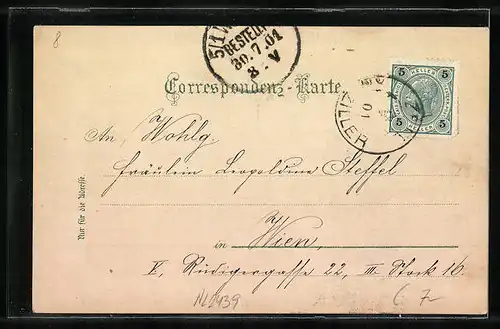 8
5/1 W
BESTELLT
30.7.01
8-V
Correspondenz-Karte.
5 HELLER 5
5 HELLER 5
ZILLER
An Wohlg.
Fräulein Leopoldine Steffel
in Wien,
V, Rüdigergasse 22, III Stock 16
Nur für die Adresse.
NL2439